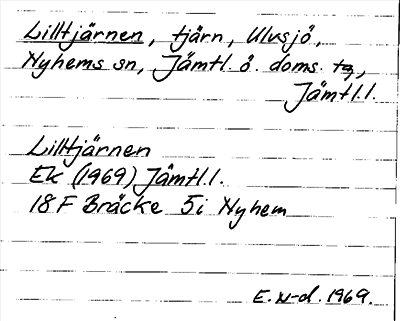 Lilltjärnen, tjärn, Ulvsjö,
Nyhems sn, Jämtl. ö. doms. tg,
Jämtl.l.
Lilltjärnen
Ek (1969) Jämtl.l.
18F Bräcke 5i Nyhem
E. N-d. 1969.